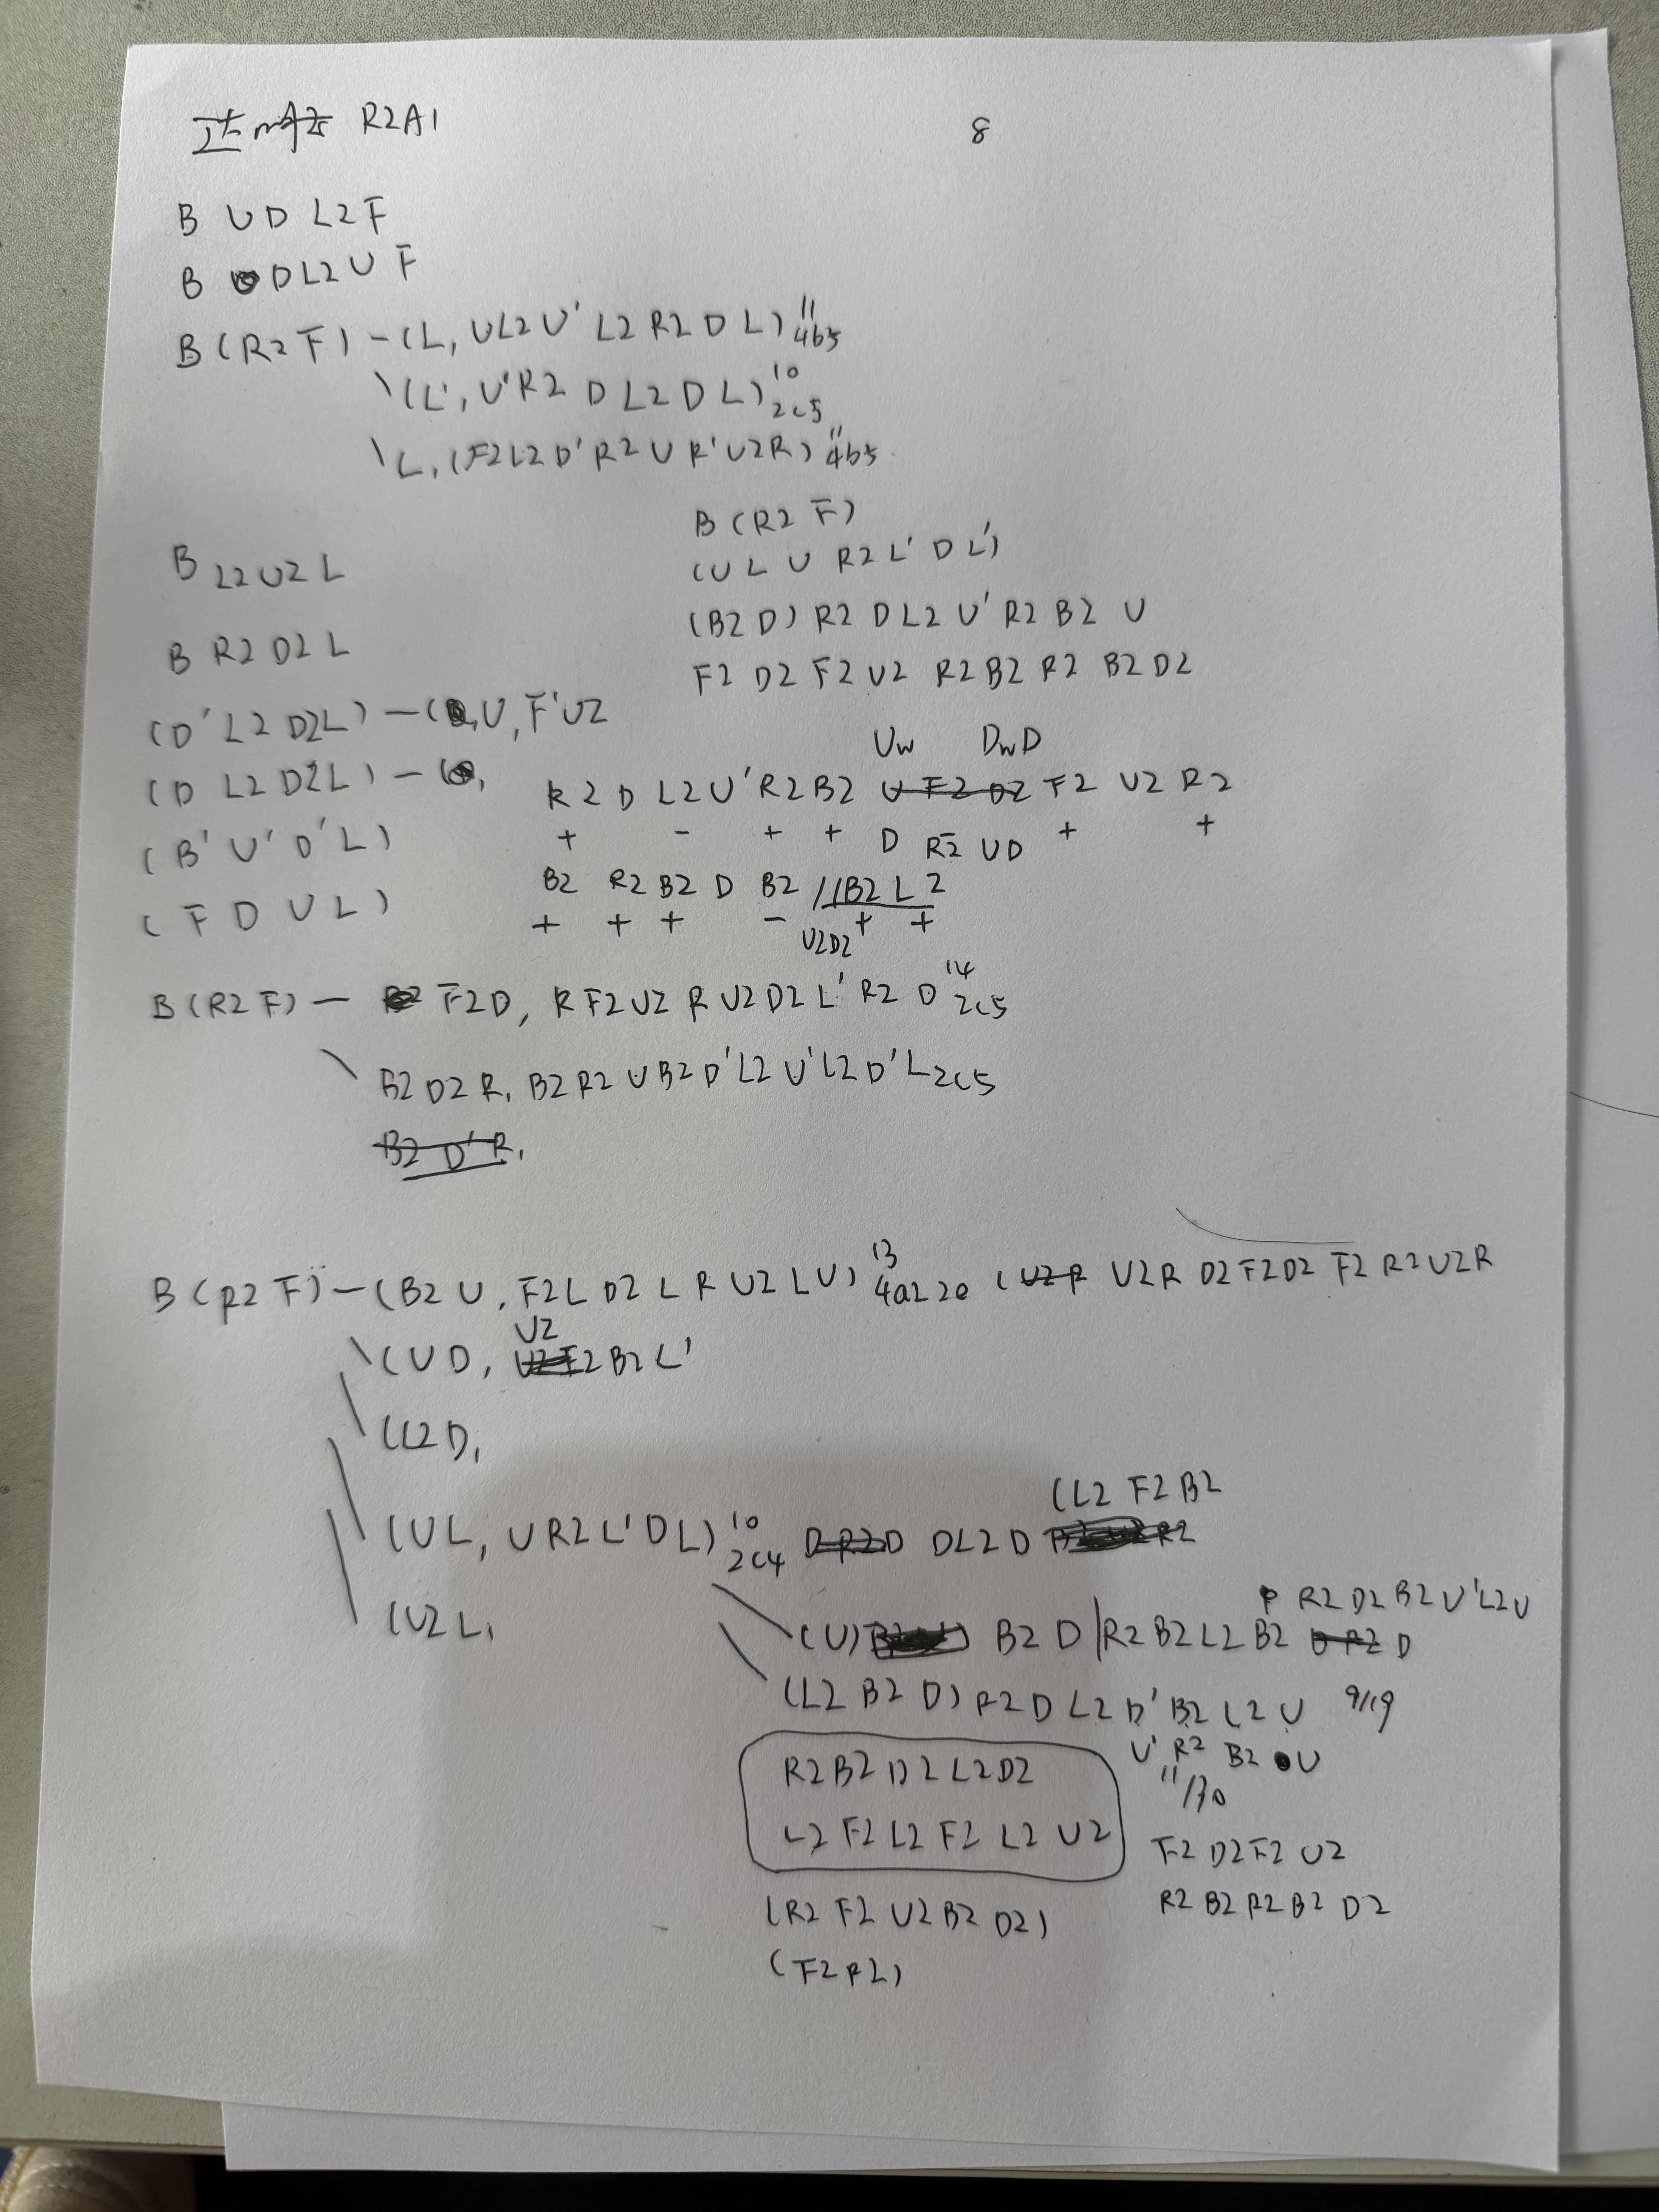 R2A1
8
B U D L2 F
B D L2 U F
B (R2 F) - (L, U L2 U' L2 R2 D L) 11 4b5
\ (L', U' R2 D L2 D L) 10 2c5
\ L, (F2 L2 D' R2 U R' U2 R) 11 4b5
B L2 U2 L
B R2 D2 L
(D' L2 D2 L) - ( , U, F' U2
(D L2 D2 L) - ( ,
(B' U' D' L)
(F D U L)
B (R2 F)
(U L U R2 L' D L')
(B2 D) R2 D L2 U' R2 B2 U
F2 D2 F2 U2 R2 B2 R2 B2 D2
Uw DwD
R2 D L2 U' R2 B2 U F2 D2 F2 U2 R2
+ - + + D R2 UD + +
B2 R2 B2 D B2 // B2 L2
+ + + - U2D2 + +
B (R2 F) - F2 D, R F2 U2 R U2 D2 L' R2 D 14 2c5
\ B2 D2 R, B2 R2 U B2 D' L2 U' L2 D' L 2c5
B2 D' R,
B (R2 F) - (B2 U, F2 L D2 L R U2 L U) 13 4a2 2e (U2 R U2 R D2 F2 D2 F2 R2 U2 R
U2
\ (U D, F2 B2 L'
\ (L2 D,
(L2 F2 B2
\ (U L, U R2 L' D L) 10 2c4 D R2 D D L2 D R2
(U2 L,
R2 D2 B2 U' L2 U
\ (U) B2 D | R2 B2 L2 B2 D R2 D
\ (L2 B2 D) R2 D L2 D' B2 L2 U 9/19
U' R2 B2 U
11/30
R2 B2 D2 L2 D2
L2 F2 L2 F2 L2 U2
F2 D2 F2 U2
R2 B2 R2 B2 D2
(R2 F2 U2 B2 D2)
(F2 R2)